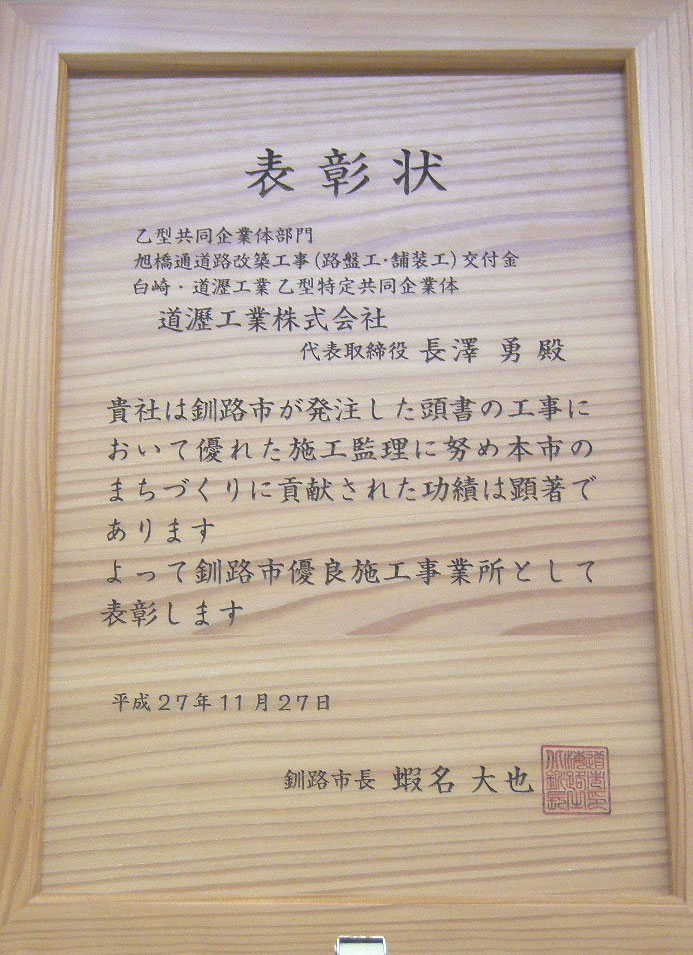 表彰状
乙型共同企業体部門
旭橋通道路改築工事(路盤工・舗装工)交付金
白崎・道瀝工業乙型特定共同企業体
道瀝工業株式会社
代表取締役 長澤 勇 殿
貴社は釧路市が発注した頭書の工事に
おいて優れた施工監理に努め本市の
まちづくりに貢献された功績は顕著で
あります
よって釧路市優良施工事業所として
表彰します
平成27年11月27日
釧路市長 蝦名 大也